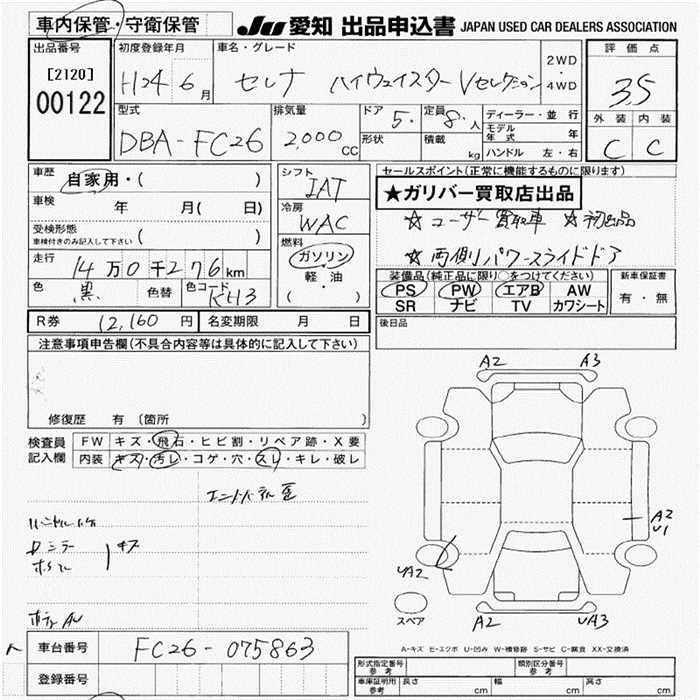 車内保管・守衛保管
JU 愛知 出品申込書 JAPAN USED CAR DEALERS ASSOCIATION
出品番号
[2120]
00122
初度登録年月
H24 6月
車名・グレード
セレナ ハイウェイスター Vセレクション
2WD
・
4WD
評価点
3.5
外装 内装
C C
型式
DBA-FC26
排気量
2,000 CC
ドア 5・
形状
定員 8・人
積載 kg
ディーラー・並行
モデル年式 年
ハンドル 左・右
車歴
自家用・( )
車検 年 月( 日)
受検形態
車検付きのみ記入して下さい ( )
走行 14万0千276km
色 黒 色替 色コード KH3
シフト
IAT
冷房
WAC
燃料
ガソリン
・
軽油
・
( )
セールスポイント(正常に機能するものに限ります)
★ガリバー買取店出品
☆ユーザー買取車 ☆初出品
☆両側パワースライドドア
装備品(純正品に限り○をつけてください)
PS PW エアB AW
SR ナビ TV カワシート
新車保証書
有・無
R券 12,160円 名変期限 月 日
後日品
注意事項申告欄(不具合内容等は具体的に記入して下さい)
修復歴 有 (箇所 )
検査員
記入欄
FW キズ・飛石・ヒビ割・リペア跡・X要
内装 キズ・汚レ・コゲ・穴・スレ・キレ・破レ
A2 A3
A2
U1
UA2
スペア
A2 UA3
A-キズ E-エクボ U-凹み W-補修跡 S-サビ C-腐食 XX-交換済
車台番号 FC26-075863
登録番号
形式指定番号
参考
類別区分番号
参考
車庫証明用
参考
長さ cm 幅 cm 高さ cm